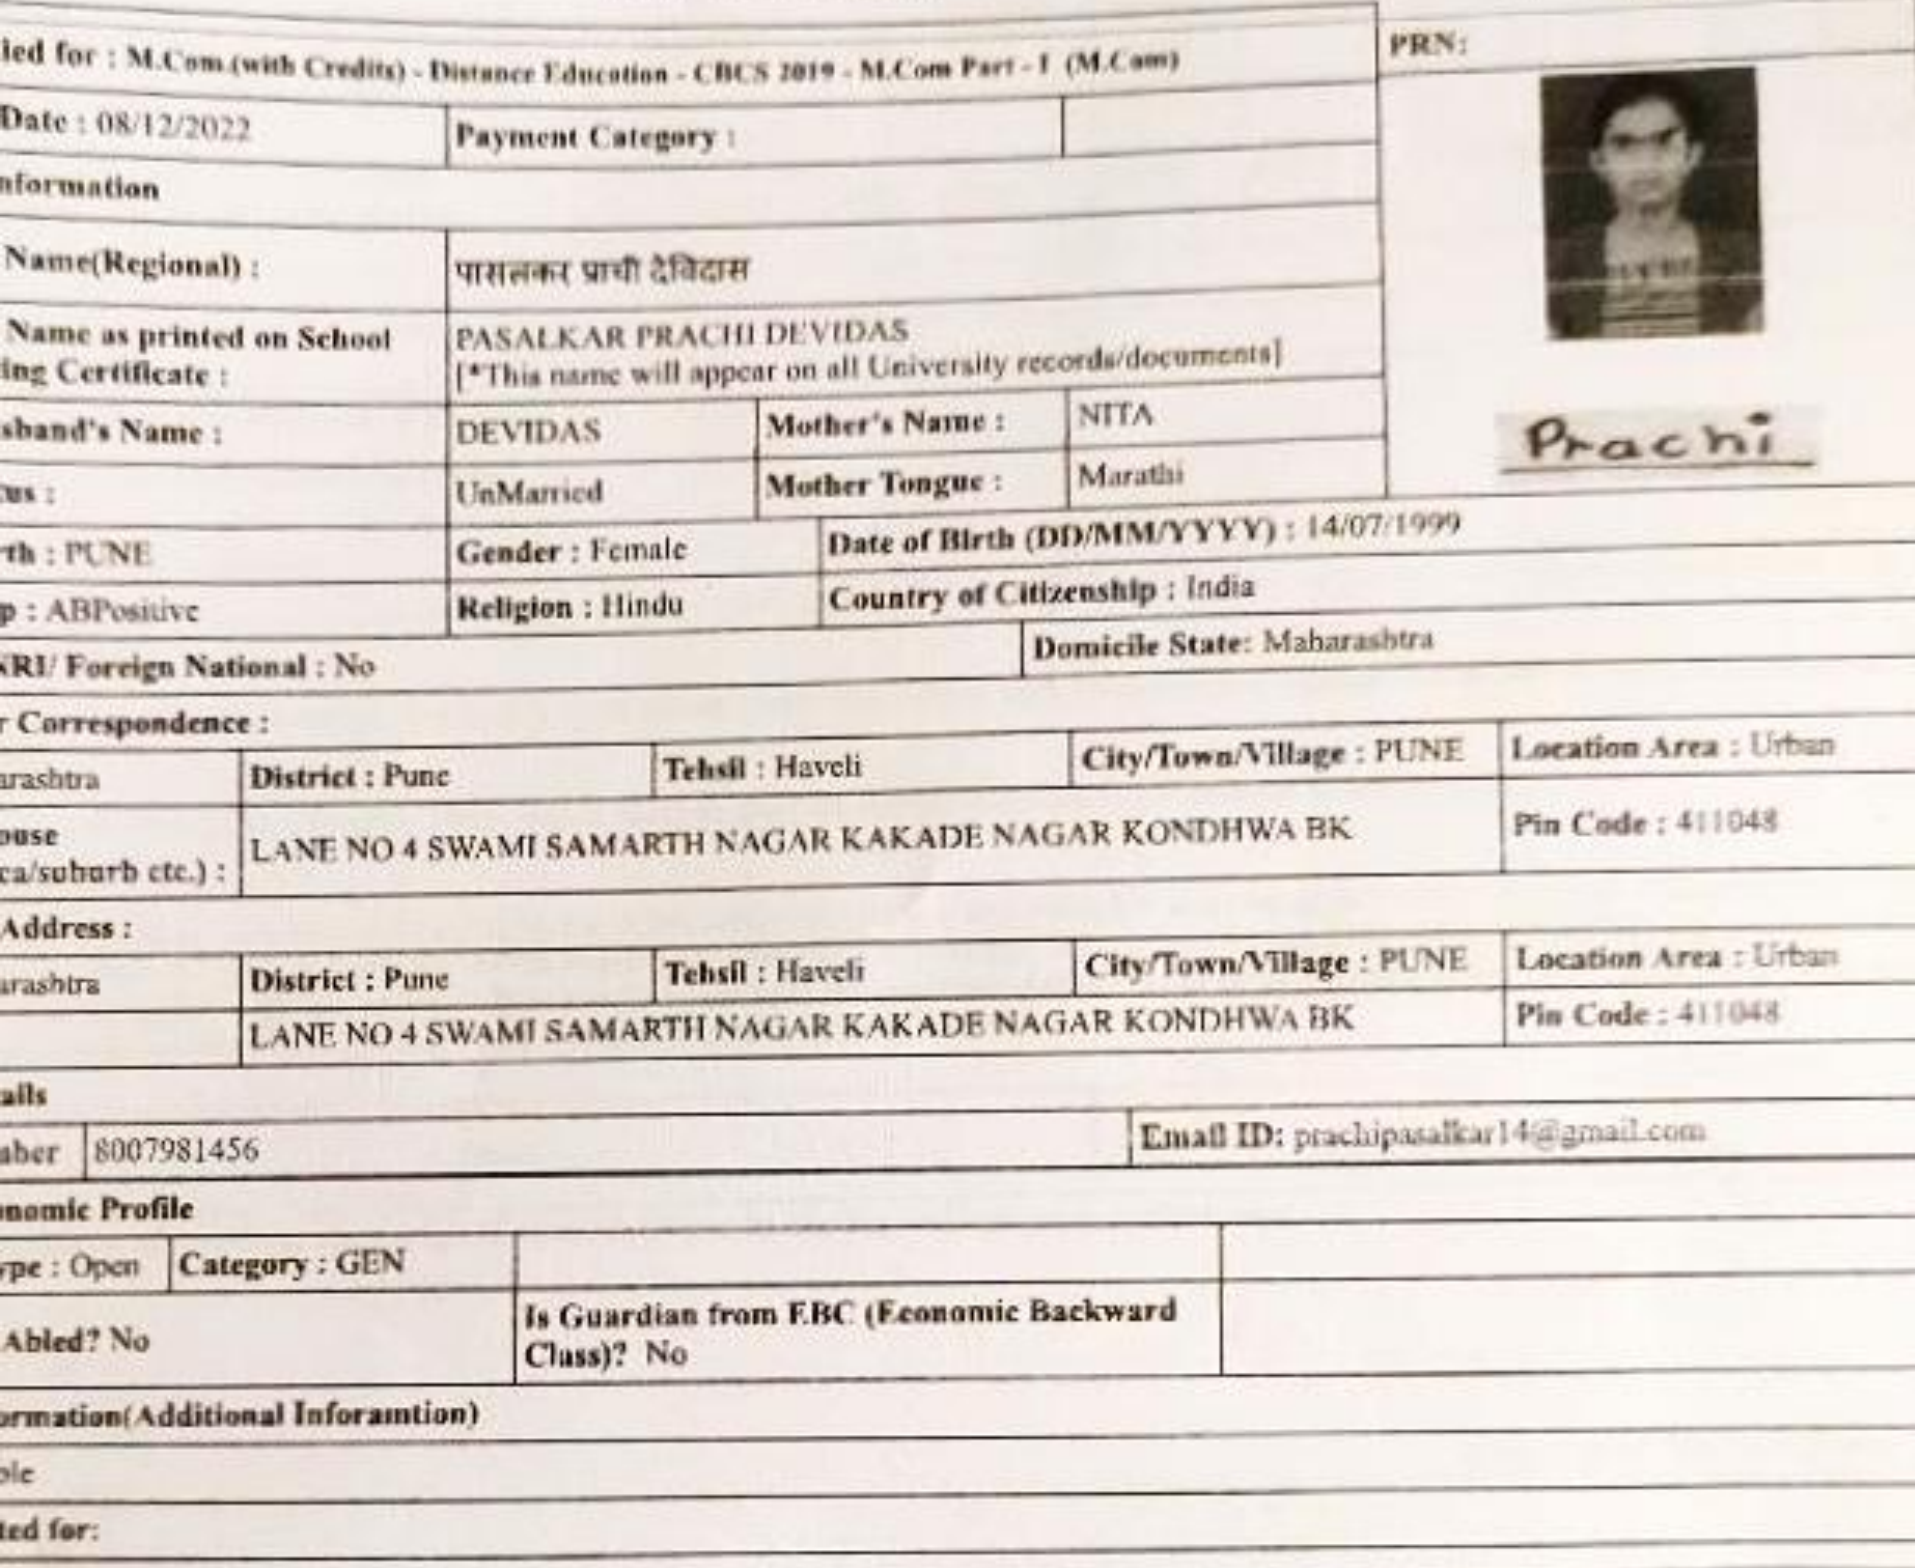 ied for : M.Com.(with Credits) - Distance Education - CBCS 2019 - M.Com Part - I (M.Com)
PRN:
Date : 08/12/2022 Payment Category :
nformation
Name(Regional) : पासलकर प्राची देविदास
Name as printed on School PASALKAR PRACHI DEVIDAS
ing Certificate : [*This name will appear on all University records/documents]
sband's Name : DEVIDAS Mother's Name : NITA
Prachi
us : UnMarried Mother Tongue : Marathi
rth : PUNE Gender : Female Date of Birth (DD/MM/YYYY) : 14/07/1999
p : ABPositive Religion : Hindu Country of Citizenship : India
NRI/ Foreign National : No Domicile State: Maharashtra
r Correspondence :
arashtra District : Pune Tehsil : Haveli City/Town/Village : PUNE Location Area : Urban
ouse
LANE NO 4 SWAMI SAMARTH NAGAR KAKADE NAGAR KONDHWA BK Pin Code : 411048
ca/suburb etc.) :
Address :
arashtra District : Pune Tehsil : Haveli City/Town/Village : PUNE Location Area : Urban
LANE NO 4 SWAMI SAMARTH NAGAR KAKADE NAGAR KONDHWA BK Pin Code : 411048
ails
mber 8007981456 Email ID: prachipasalkar14@gmail.com
onomic Profile
ype : Open Category : GEN
Abled? No Is Guardian from EBC (Economic Backward
Class)? No
ormation(Additional Inforamtion)
ble
ted for: